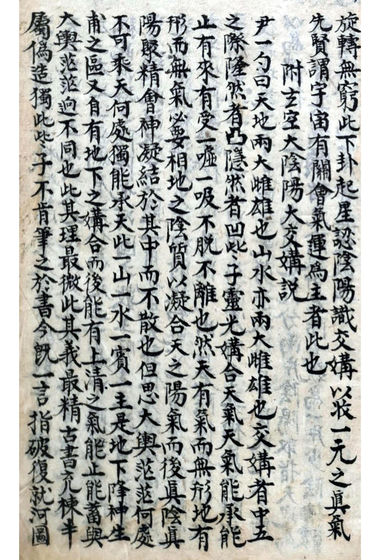 旋轉無窮此下卦起星認陰陽識交媾以收一元之真氣
先賢謂宇宙有關會氣運為主者此也
附玄空大陰陽大交媾說
尹一勺曰天地兩大雌雄也山水亦兩大雌雄也交媾者中五
之際隆然者凸隱然者凹此此子靈光媾合天氣天氣能承能
止有來有受一噓一吸不脫不離也然天有氣而無形地有
形而無氣必要相地之陰質以凝合天之陽氣而後真陰真
陽聚精會神凝結於其中而不散也但思大輿茫茫何處
不可乘天何處獨能承天此一山一水一賓一主是地下降神生
甫之區又自有地下之媾合而後能有上清之氣能止能蓄與
大輿茫茫迥不同也此其理最微此其義最精古書充棟半
屬偽造獨此此子不肯筆之於書今既一言指破復就河圖